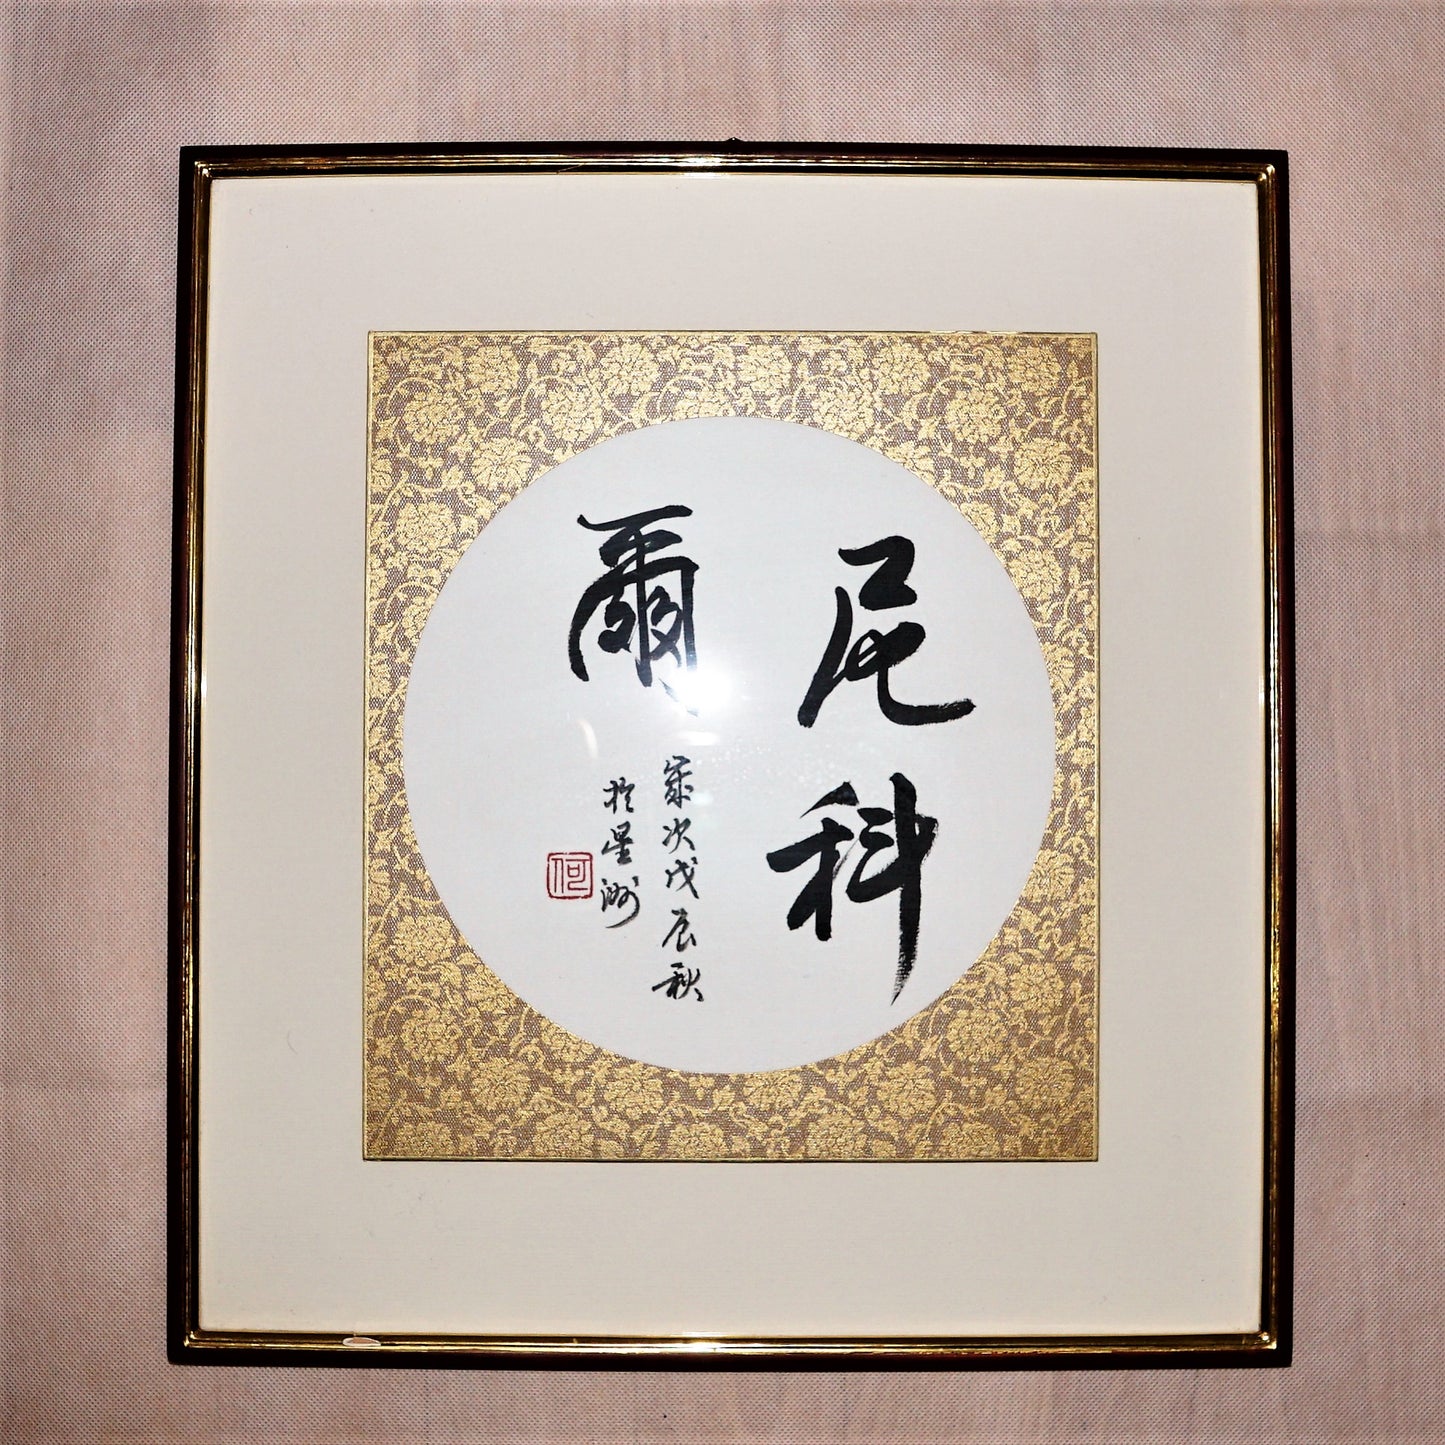 尼科
爾
歲次戊辰秋
於星洲
何